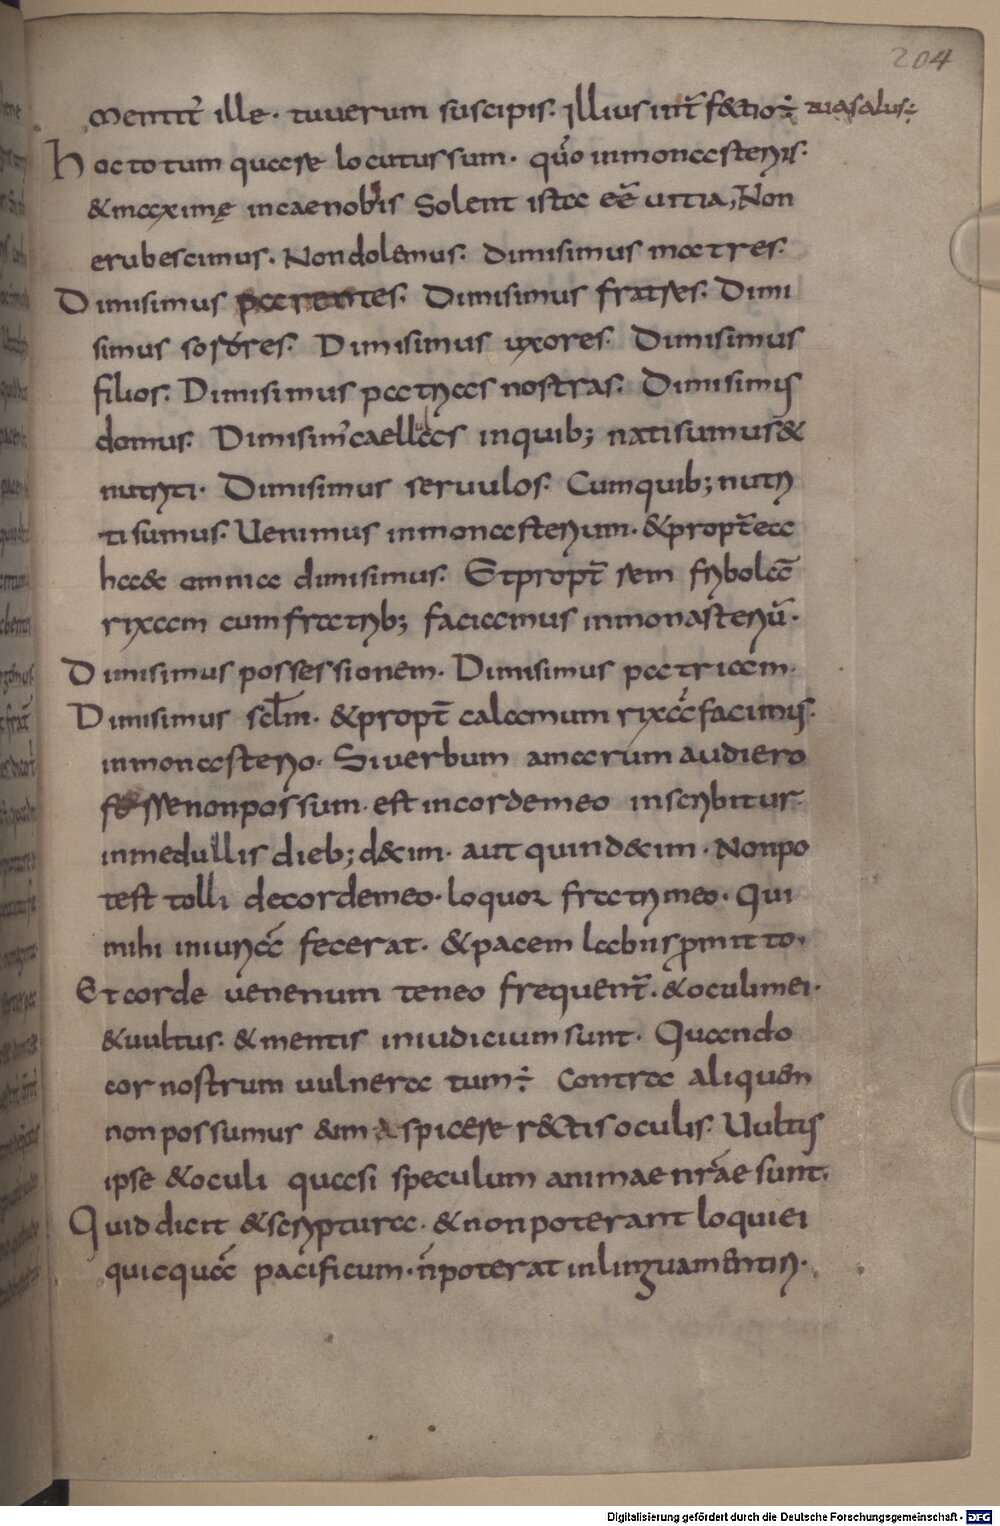 204
mentit̄ ille · tu uerum suscipis. Illius int̄ fectio÷ tua salus:
Hoc totum quare locutus sum · quō in monasteriis.
& maximę in caenobiis Solent ista eē uitia, Non
erubescimus. Non dolemus. Dimisimus matres.
Dimisimus parentes. Dimisimus fratres. Dimi
simus sorores. Dimisimus uxores. Dimisimus
filios. Dimisimus patrias nostras. Dimisimus
domus. Dimisim' caellulas in quib; nati sumus &
nutriti. Dimisimus seruulos. Cum quib; nutri
ti sumus. Uenimus in monasterium. & propt̄ ea
haec omnia dimisimus. Et propt̄ sem fribolā
rixam cum fratrib; faciamus in monasteriū.
Dimisimus possessionem. Dimisimus patriam.
Dimisimus sclm̄. & propt̄ calamum rixā facimus.
in monasterio. Si uerbum amarum audiero
fesse non possum. est in corde meo inscribitur
in medullis dieb; decim. aut quindecim. Non po
test tolli de corde meo. loquor fratri meo. Qui
mihi iniuriā fecerat. & pacem labiis p̄mitto.
Et corde uenenum teneo frequent̄. & oculi mei.
& uultus. & mentis in iudicium sunt. Quando
cor nostrum uulneratum ÷ Contra aliquem
non possumus eum aspicere rectis oculis. Uultus
ipse & oculi quasi speculum animae nrāe sunt.
Quid dicit & scriptura. & non poterant loqui ei
quicquā pacificum. n̄ poterat in linguam entir.
Digitalisierung gefördert durch die Deutsche Forschungsgemeinschaft - DFG